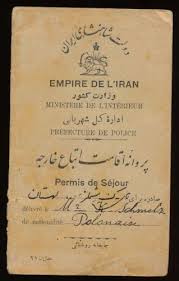 دولت شاهنشاهی ایران
EMPIRE DE L'IRAN
وزارت کشور
MINISTÈRE DE L'INTÉRIEUR
اداره کل شهربانی
PRÉFECTURE DE POLICE
پروانه اقامت اتباع خارجه
Permis de Séjour
délivré à M Schmelz
de nationalité Polonaise
چاپخانه روشنائی